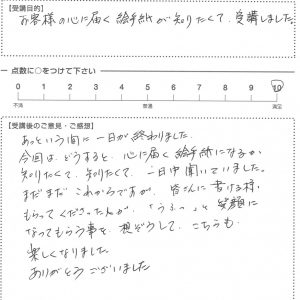 【受講目的】
お客様の心に届く絵手紙が知りたくて、受講しました。
点数に○をつけて下さい
0 1 2 3 4 5 6 7 8 9 10
不満 普通 満足
【受講後のご意見・ご感想】
あっという間に一日が終わりました。
今回は、どうすると、心に届く絵手紙になるか、
知りたくて、知りたくて、一日中聞いていました。
まだまだこれからですが、皆さんに書ける様、
もらってくださった人が、「うふっ」と笑顔に
なってもらう事を、想ぞうして、こちらも、
楽しくなりました。
ありがとうございました